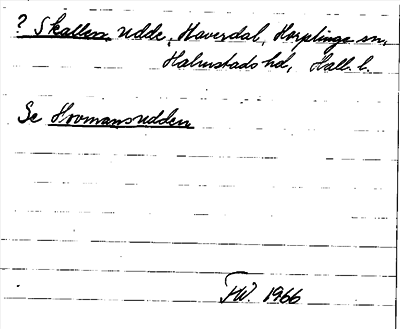 ? Skallen, udde, Haverdal, Harplinge sn,
Halmstads hd, Hall. l.
Se Hovmansudden
TW. 1966